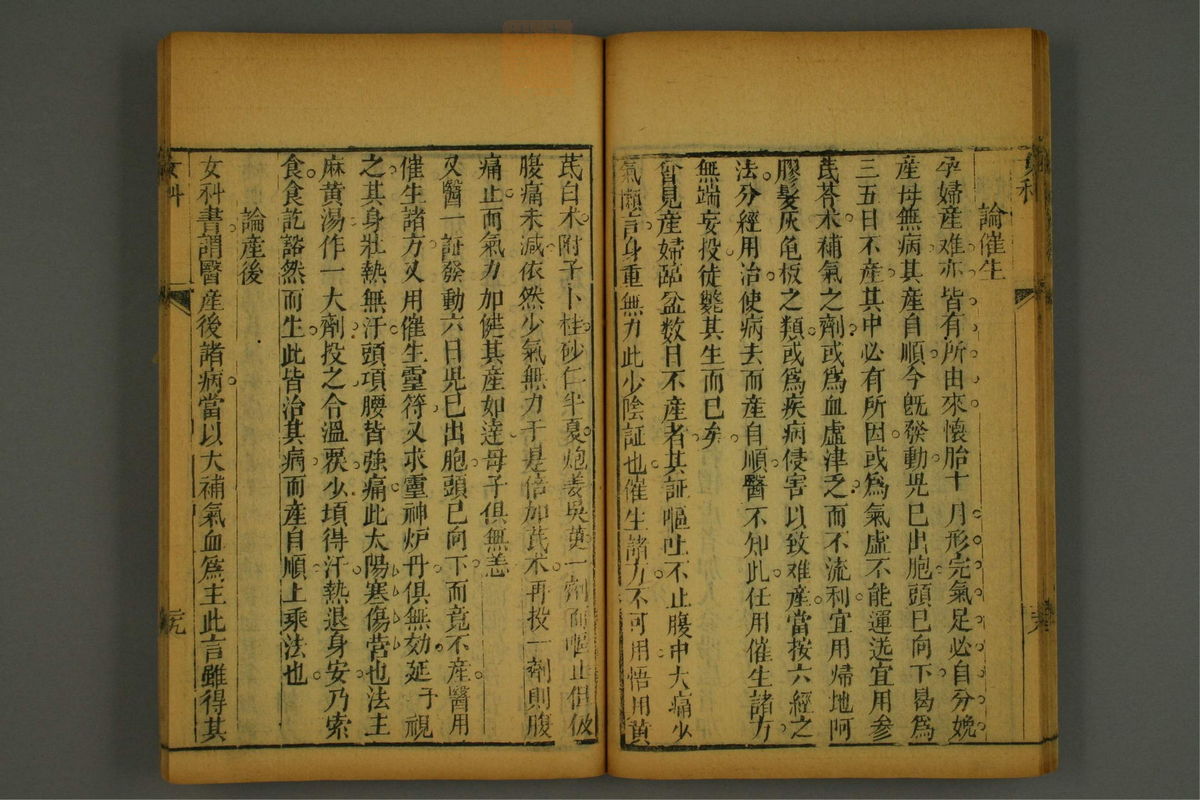 論催生
孕婦産难亦皆有所由來懷胎十月形完氣足必自分娩
産母無病其産自順今旣發動児已出胞頭已向下曷爲
三五日不産其中必有所因或爲氣虚不能運送宜用参
芪苓术補氣之劑或爲血虚津乏而不流利宜用歸地阿
膠髮灰龟板之類或爲疾病侵害以致难産當按六經之
法分經用治使病去而産自順醫不知此任用催生諸方
無端妄投徒斃其生而已矣
曾見産婦臨盆数日不産者其証嘔吐不止腹中大痛少
氣懶言身重無力此少陰証也催生諸方不可用悟用黄
芪白术附子卜桂砂仁半夏炮姜吳萸一劑而嘔止但仮
腹痛未減依然少氣無力于是倍加芪术再投一劑則腹
痛止而氣力加健其産如達母子俱無恙
又醫一証發動六日児已出胞頭已向下而竟不産醫用
催生諸方又用催生靈符又求靈神炉丹俱無効延予視
之其身壯熱無汗頭項腰皆強痛此太陽寒傷营也法主
麻黄湯作一大劑投之令溫覆少頃得汗熱退身安乃索
食食訖豁然而生此皆治其病而産自順上乘法也
論産後
女科書謂醫産後諸病當以大補氣血爲主此言雖得其
女科